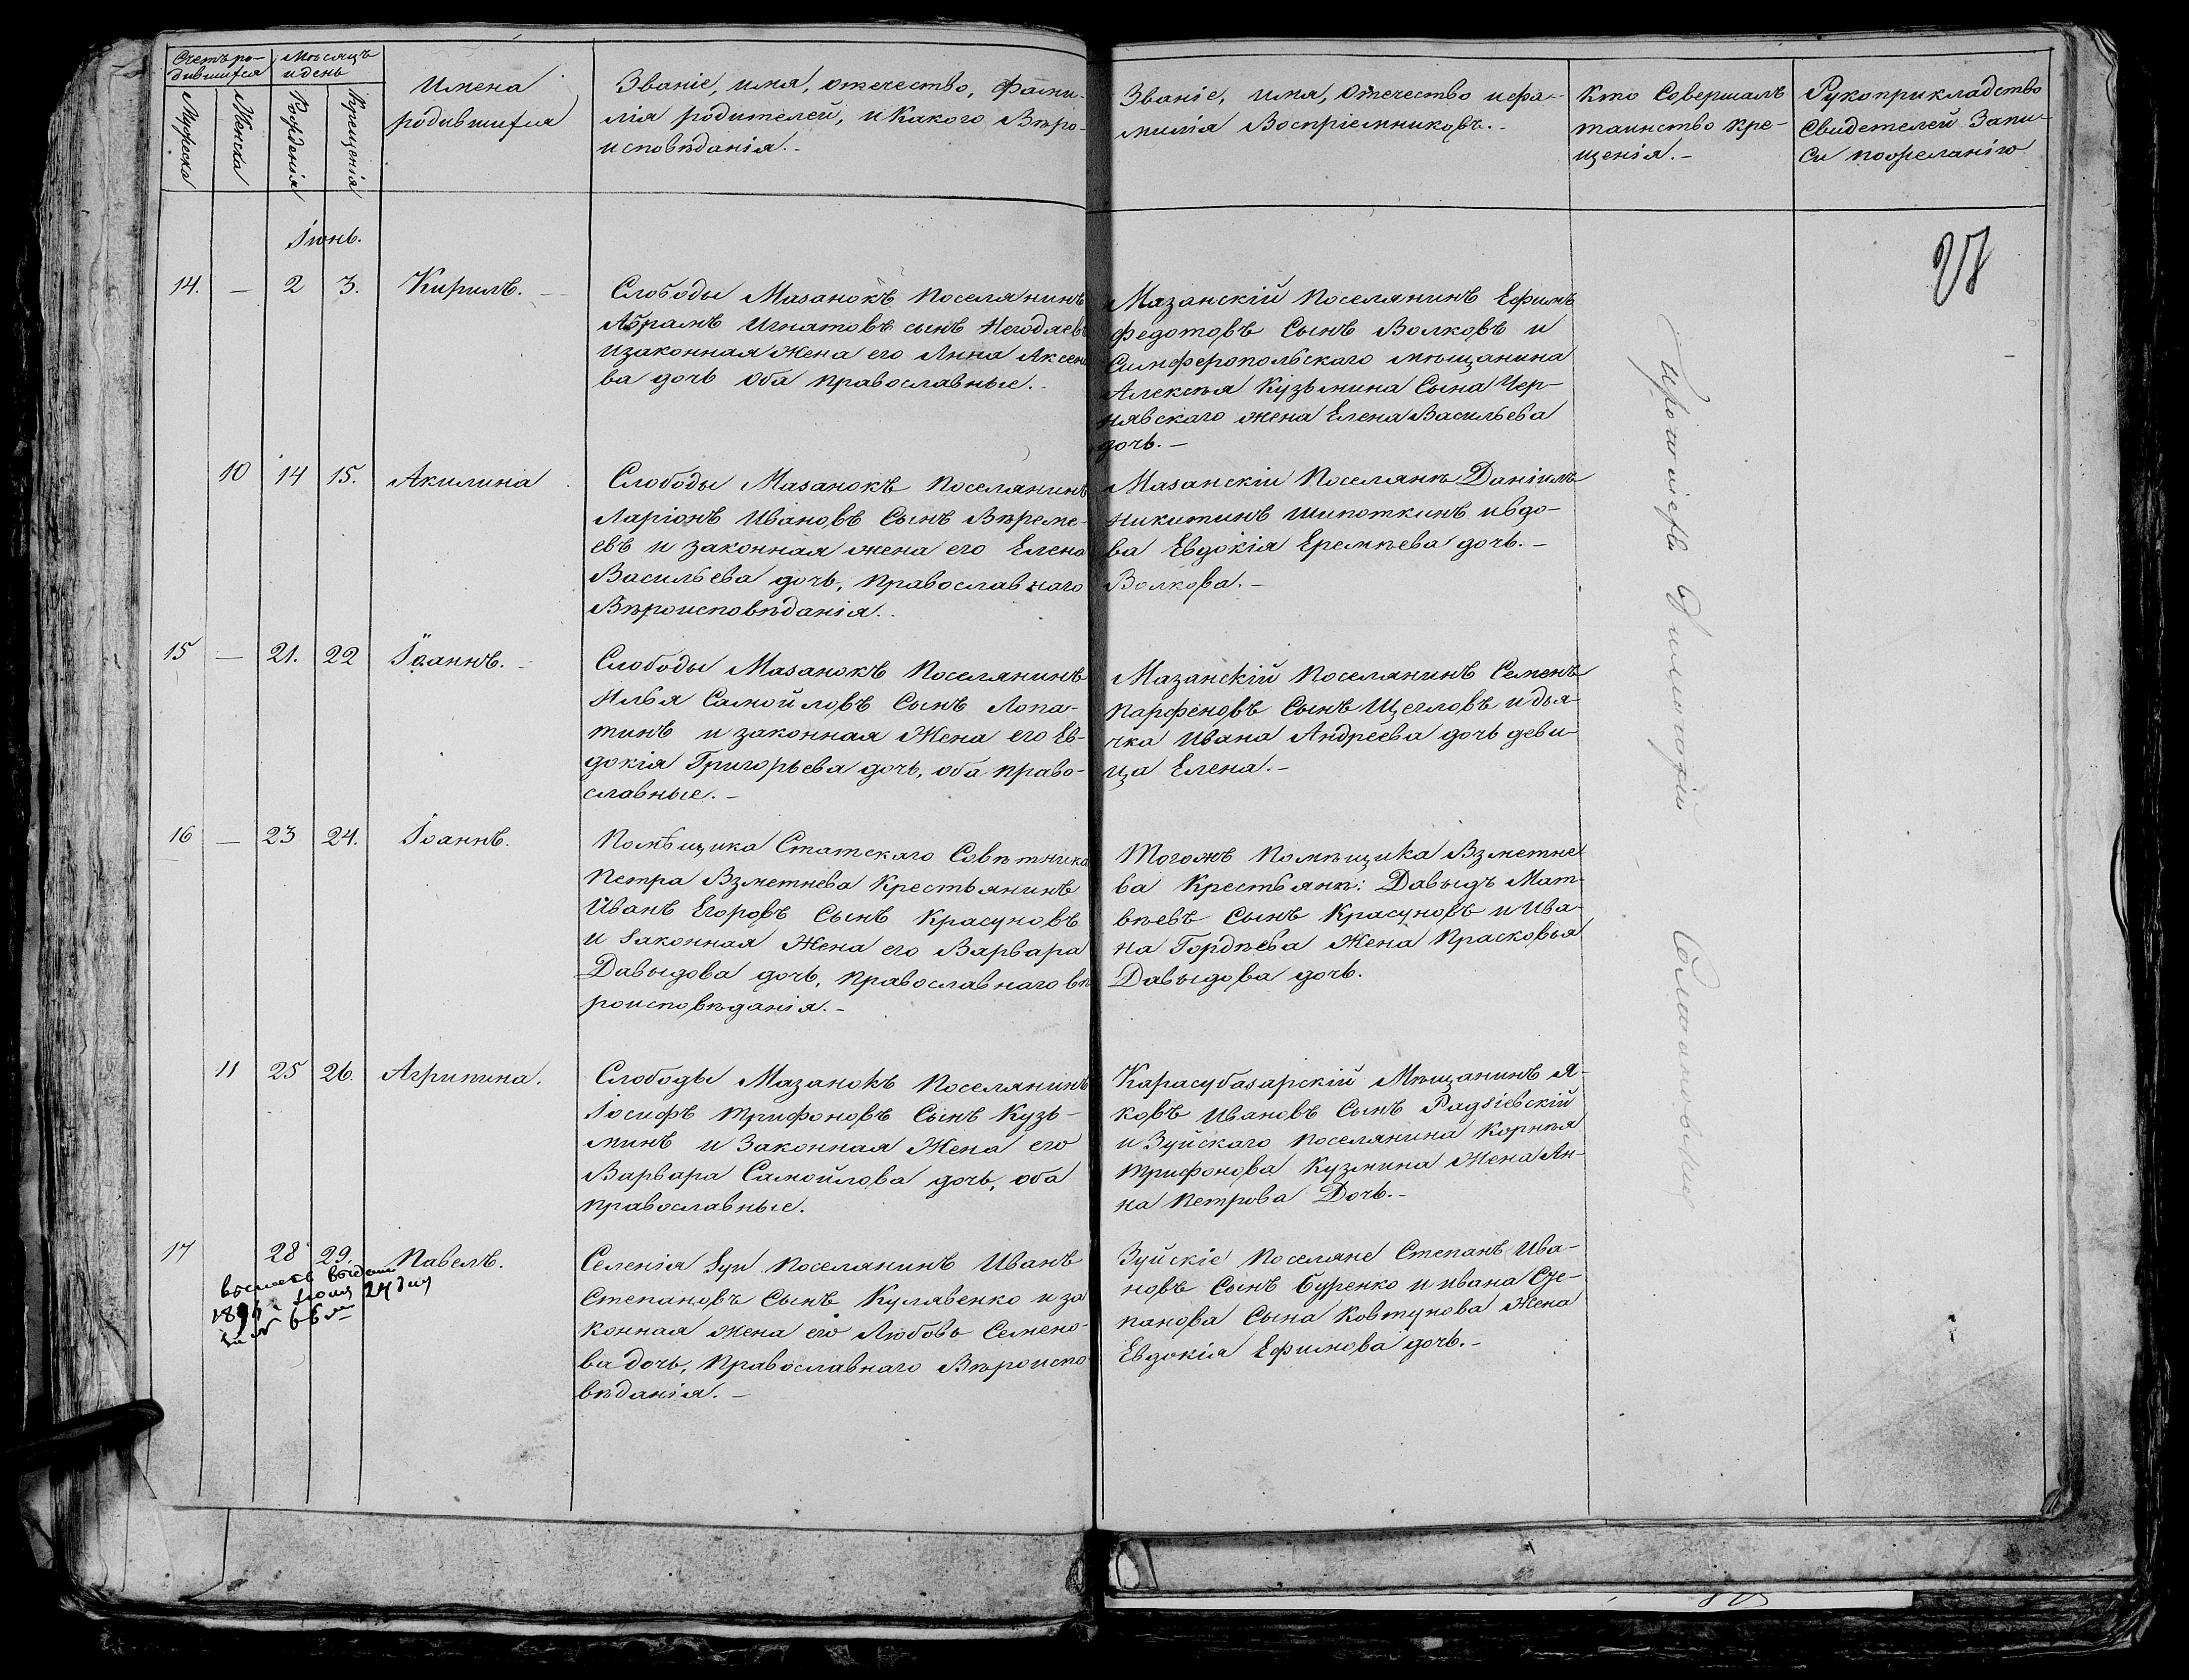 Счетъ ро-
дившихся
Мѣсяцъ
и день
Имена
родившихся
Званіе, имя, отечество, фами-
лія родителей, и какого Вѣро-
исповѣданія.-
Званіе, имя, Отечество и фа-
милія Воспріемниковъ.-
Кто Совершалъ
таинство кре-
щенія.-
Рукоприкладство
Свидетелей Запи-
си пожеланію
Мужеска
Женска
Рожденія
Крещенія
Іюнь.
28
14. — 2 3. Кирилъ.
Слободы Мазанокъ Поселянинъ
Абрамъ Игнатовъ сынъ Негодяевъ
и законная Жена его Анна Аксено
ва дочь Оба православные.-
Мазанскій Поселянинъ Ефимъ
Федотовъ Сынъ Волковъ и
Симферопольскаго мѣщанина
Алексѣя Кузьмина Сына Чер-
нявскаго жена Елена Васильева
дочь.-
10 14 15. Акилина
Слободы Мазанокъ Поселянинъ
Ларіонъ Ивановъ Сынъ Вѣреме-
евъ и законная жена его Елена
Васильева дочь, православнаго
Вѣроисповѣданія.
Мазанскіи Поселянъ Даніилъ
Никитинъ Шипоткинъ и вдо-
ва Евдокія Еремѣева дочь.-
Волкова.-
15 — 21. 22 Іоаннъ.
Слободы Мазанокъ Поселянинъ
Илья Самойловъ Сынъ Лопа-
тинъ и законная Жена его Ев-
докія Григорьева дочь, оба право-
славные.-
Мазанскій Поселянинъ Семенъ
Парфеновъ Сынъ Щегловъ и дья-
чка Ивана Андреева дочь деви-
ца Елена.-
16 — 23 24. Іоаннъ.
Помѣщика Статскаго Совѣтника
Петра Взметнева Крестьянинъ
Иванъ Егоровъ Сынъ Красуновъ
и законная Жена его Варвара
Давыдова дочь, православнаго вѣ
роисповѣданія.-
Тогожъ Помѣщика Взметне
ва Крестьянъ: Давыдъ Мат-
вѣевъ Сынъ Красуновъ и Ива-
на Гордѣева Жена Прасковья
Давыдова дочь.
11 25 26. Агрипина.
Слободы Мазанокъ Поселянинъ
Іосифъ Трифоновъ Сынъ Кузь-
минъ и Законная Жена его
Варвара Самойлова дочь, оба
православные.
Карасубазарскій Мѣщанинъ Я-
ковъ Ивановъ Сынъ Радзіевскій
и Зуйскаго поселянина Корнѣя
Трифонова Кузмина Жена Ан-
на Петрова Дочь.-
17 28 29. Павелъ.
Селенія Зуи Поселянинъ Иванъ
Степановъ Сынъ Кулявенко и за
конная жена его Любовь Семено-
ва дочь, Православнаго Вѣроиспо
вѣданія.-
Зуйскіе Поселяне Степанъ Ива-
новъ Сынъ Буренко и ивана Сте-
панова Сына Ковтунова Жена
Евдокія Ефимова дочь.-
24 дня
Протоіерей